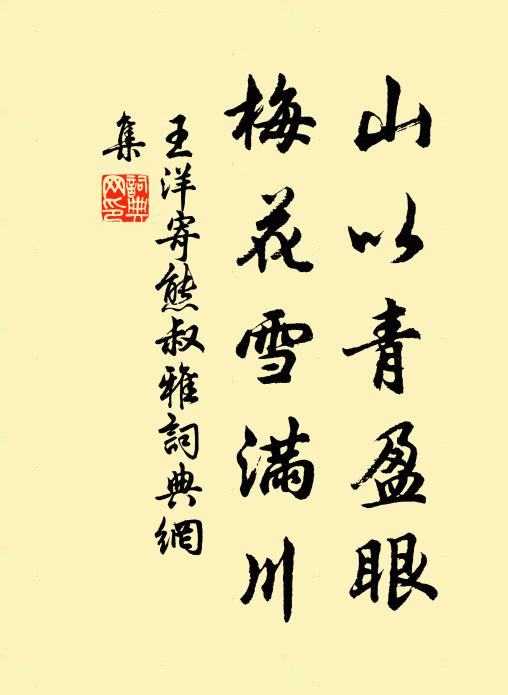 山以青盈眼
梅花雪满川
王洋寄熊叔雅詞典網
集
詞典网印